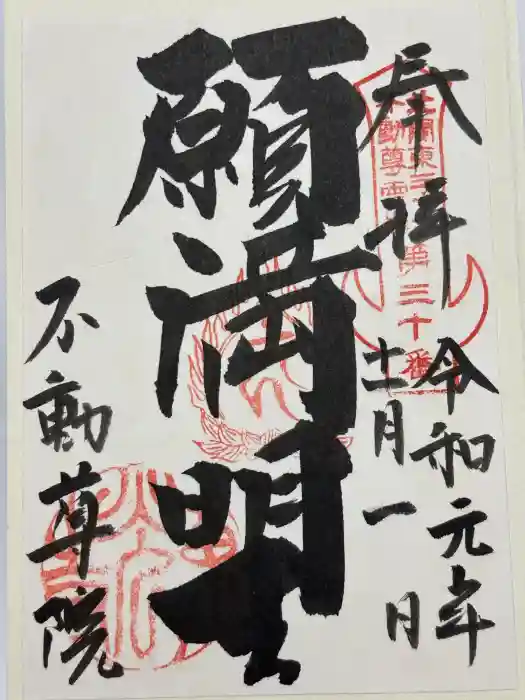 奉拝
令和元年
十一月一日
北関東三十六
不動尊霊場第三十番
願満明王
不動尊院